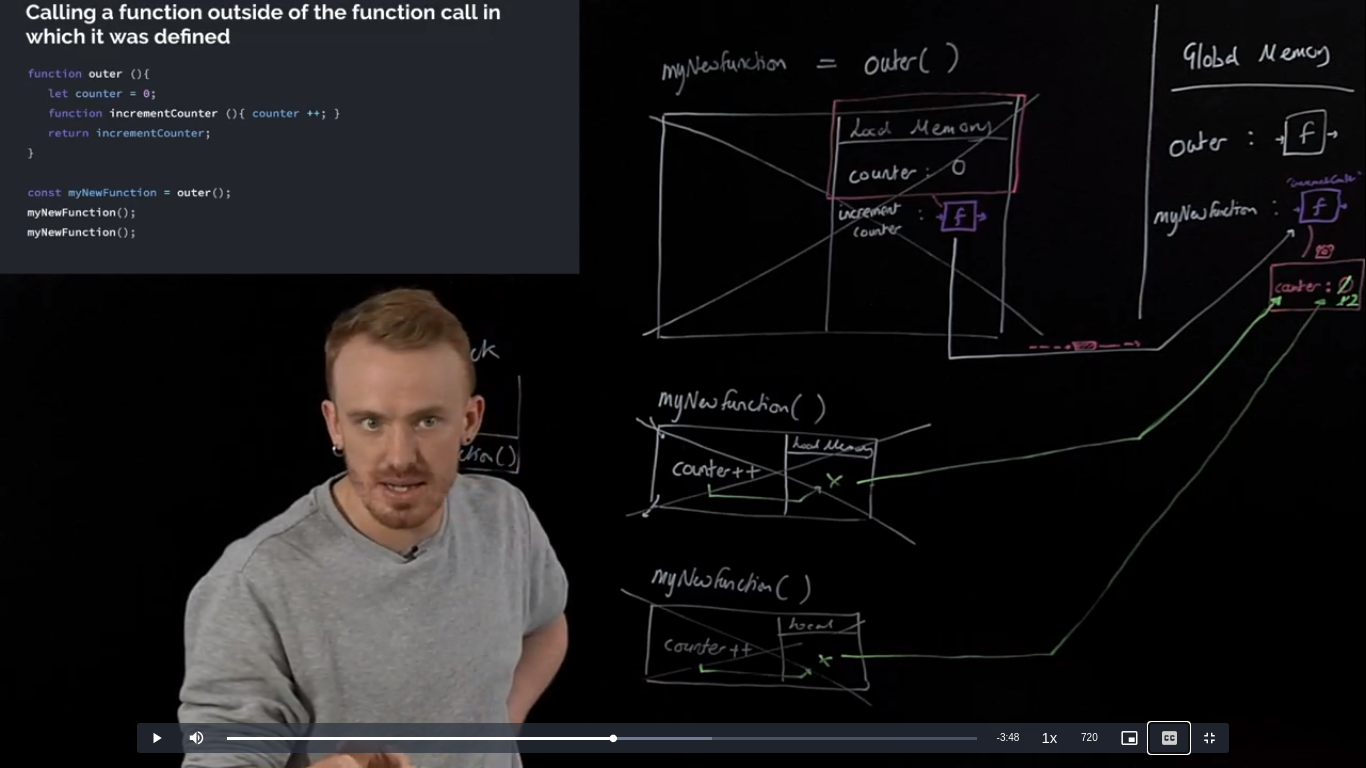 Calling a function outside of the function call in
which it was defined
function outer (){
let counter = 0;
function incrementCounter (){ counter ++; }
return incrementCounter;
}
const myNewFunction = outer();
myNewFunction();
myNewFunction();
myNewfunction = outer( )
Local Memory
counter : 0
increment
counter : f
Global Memory
outer : f
"incrementCounter"
myNewfunction : f
counter : 0
1 2
ck
ction()
myNewfunction( )
Local Memory
counter++ x
myNewfunction( )
Local
counter++ x
-3:48 1x 720 CC